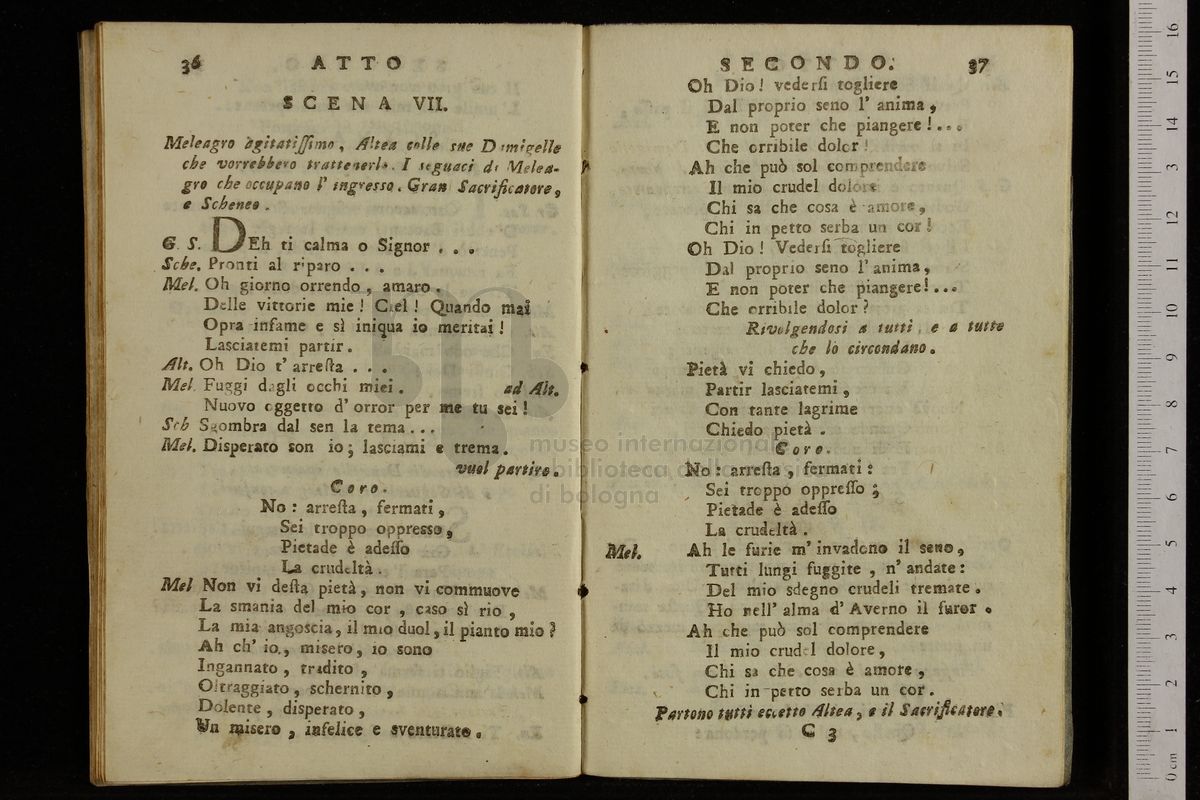 36 ATTO
SCENA VII.
Meleagro agitatissimo, Altea colle sue Damigelle
che vorrebbero trattenerlo. I seguaci di Melea-
gro che occupano l' ingresso. Gran Sacrificatore,
e Scheneo.
G. S. DEh ti calma o Signor . . .
Sche. Pronti al riparo . . .
Mel. Oh giorno orrendo, amaro.
Delle vittorie mie! Ciel! Quando mai
Opra infame e sì iniqua io meritai!
Lasciatemi partir.
Alt. Oh Dio t' arresta . . .
Mel. Fuggi dagli occhi miei. ad Alt.
Nuovo oggetto d' orror per me tu sei!
Sch Sgombra dal sen la tema...
Mel. Disperato son io; lasciami e trema.
vuol partire.
Coro.
No: arresta, fermati,
Sei troppo oppresso,
Pietade è adesso
La crudeltà.
Mel Non vi desta pietà, non vi commuove
La smania del mio cor, caso sì rio,
La mia angoscia, il mio duol, il pianto mio?
Ah ch' io, misero, io sono
Ingannato, tradito,
Oltraggiato, schernito,
Dolente, disperato,
Un misero, infelice e sventurato.
SECONDO. 37
Oh Dio! vedersi togliere
Dal proprio seno l' anima,
E non poter che piangere!...
Che orribile dolor!
Ah che può sol comprendere
Il mio crudel dolore
Chi sa che cosa è amore,
Chi in petto serba un cor!
Oh Dio! Vedersi togliere
Dal proprio seno l' anima,
E non poter che piangere!...
Che orribile dolor?
Rivolgendosi a tutti, e a tutte
che lo circondano.
Pietà vi chiedo,
Partir lasciatemi,
Con tante lagrime
Chiedo pietà.
Coro.
No: arresta, fermati:
Sei troppo oppresso;
Pietade è adesso
La crudeltà.
Mel. Ah le furie m' invadono il seno,
Tutti lungi fuggite, n' andate:
Del mio sdegno crudeli tremate.
Ho nell' alma d' Averno il furor.
Ah che può sol comprendere
Il mio crudel dolore,
Chi sa che cosa è amore,
Chi in petto serba un cor.
Partono tutti eccetto Altea, e il Sacrificatore.
C 3
museo internazionale
e biblioteca della
di bologna
0 cm 1 2 3 4 5 6 7 8 9 10 11 12 13 14 15 16